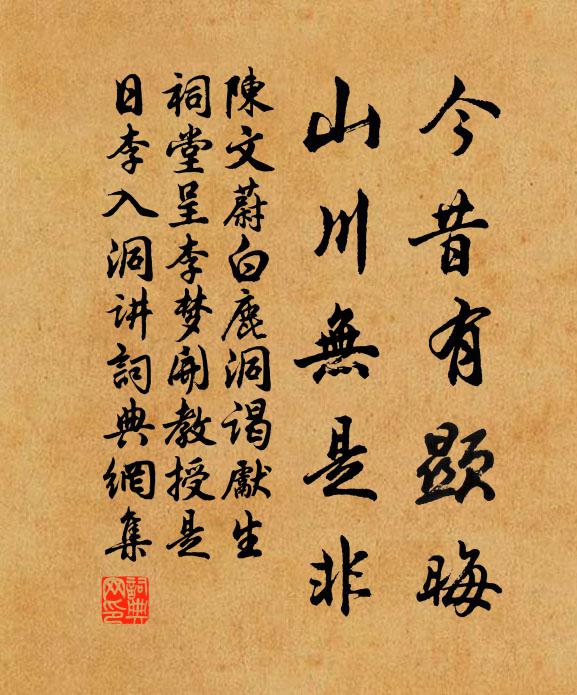 今昔有顯晦
山川無是非
陳文蔚白鹿洞谒獻生
祠堂呈李梦開教授是
日李入洞讲詞典網集
詞典网印